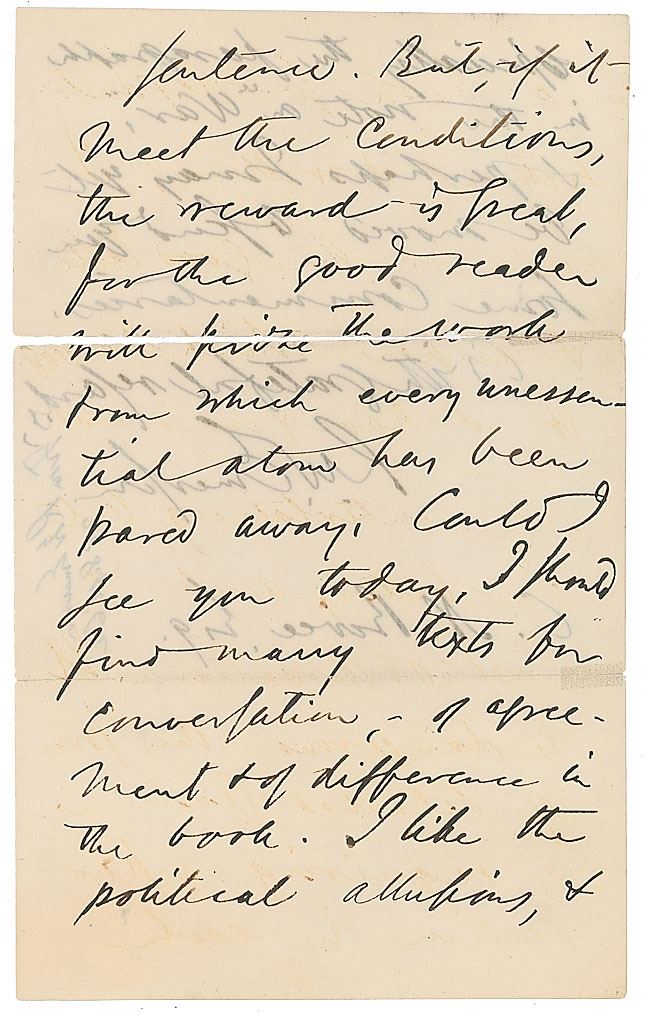 sentence. But, if it
meet the conditions,
the reward is great,
for the good reader
will prize the work
from which every unessen-
tial atom has been
pared away. Could I
see you today, I should
find many texts for
conversation, - of agree-
ment & of difference in
the book. I like the
political allusions, &